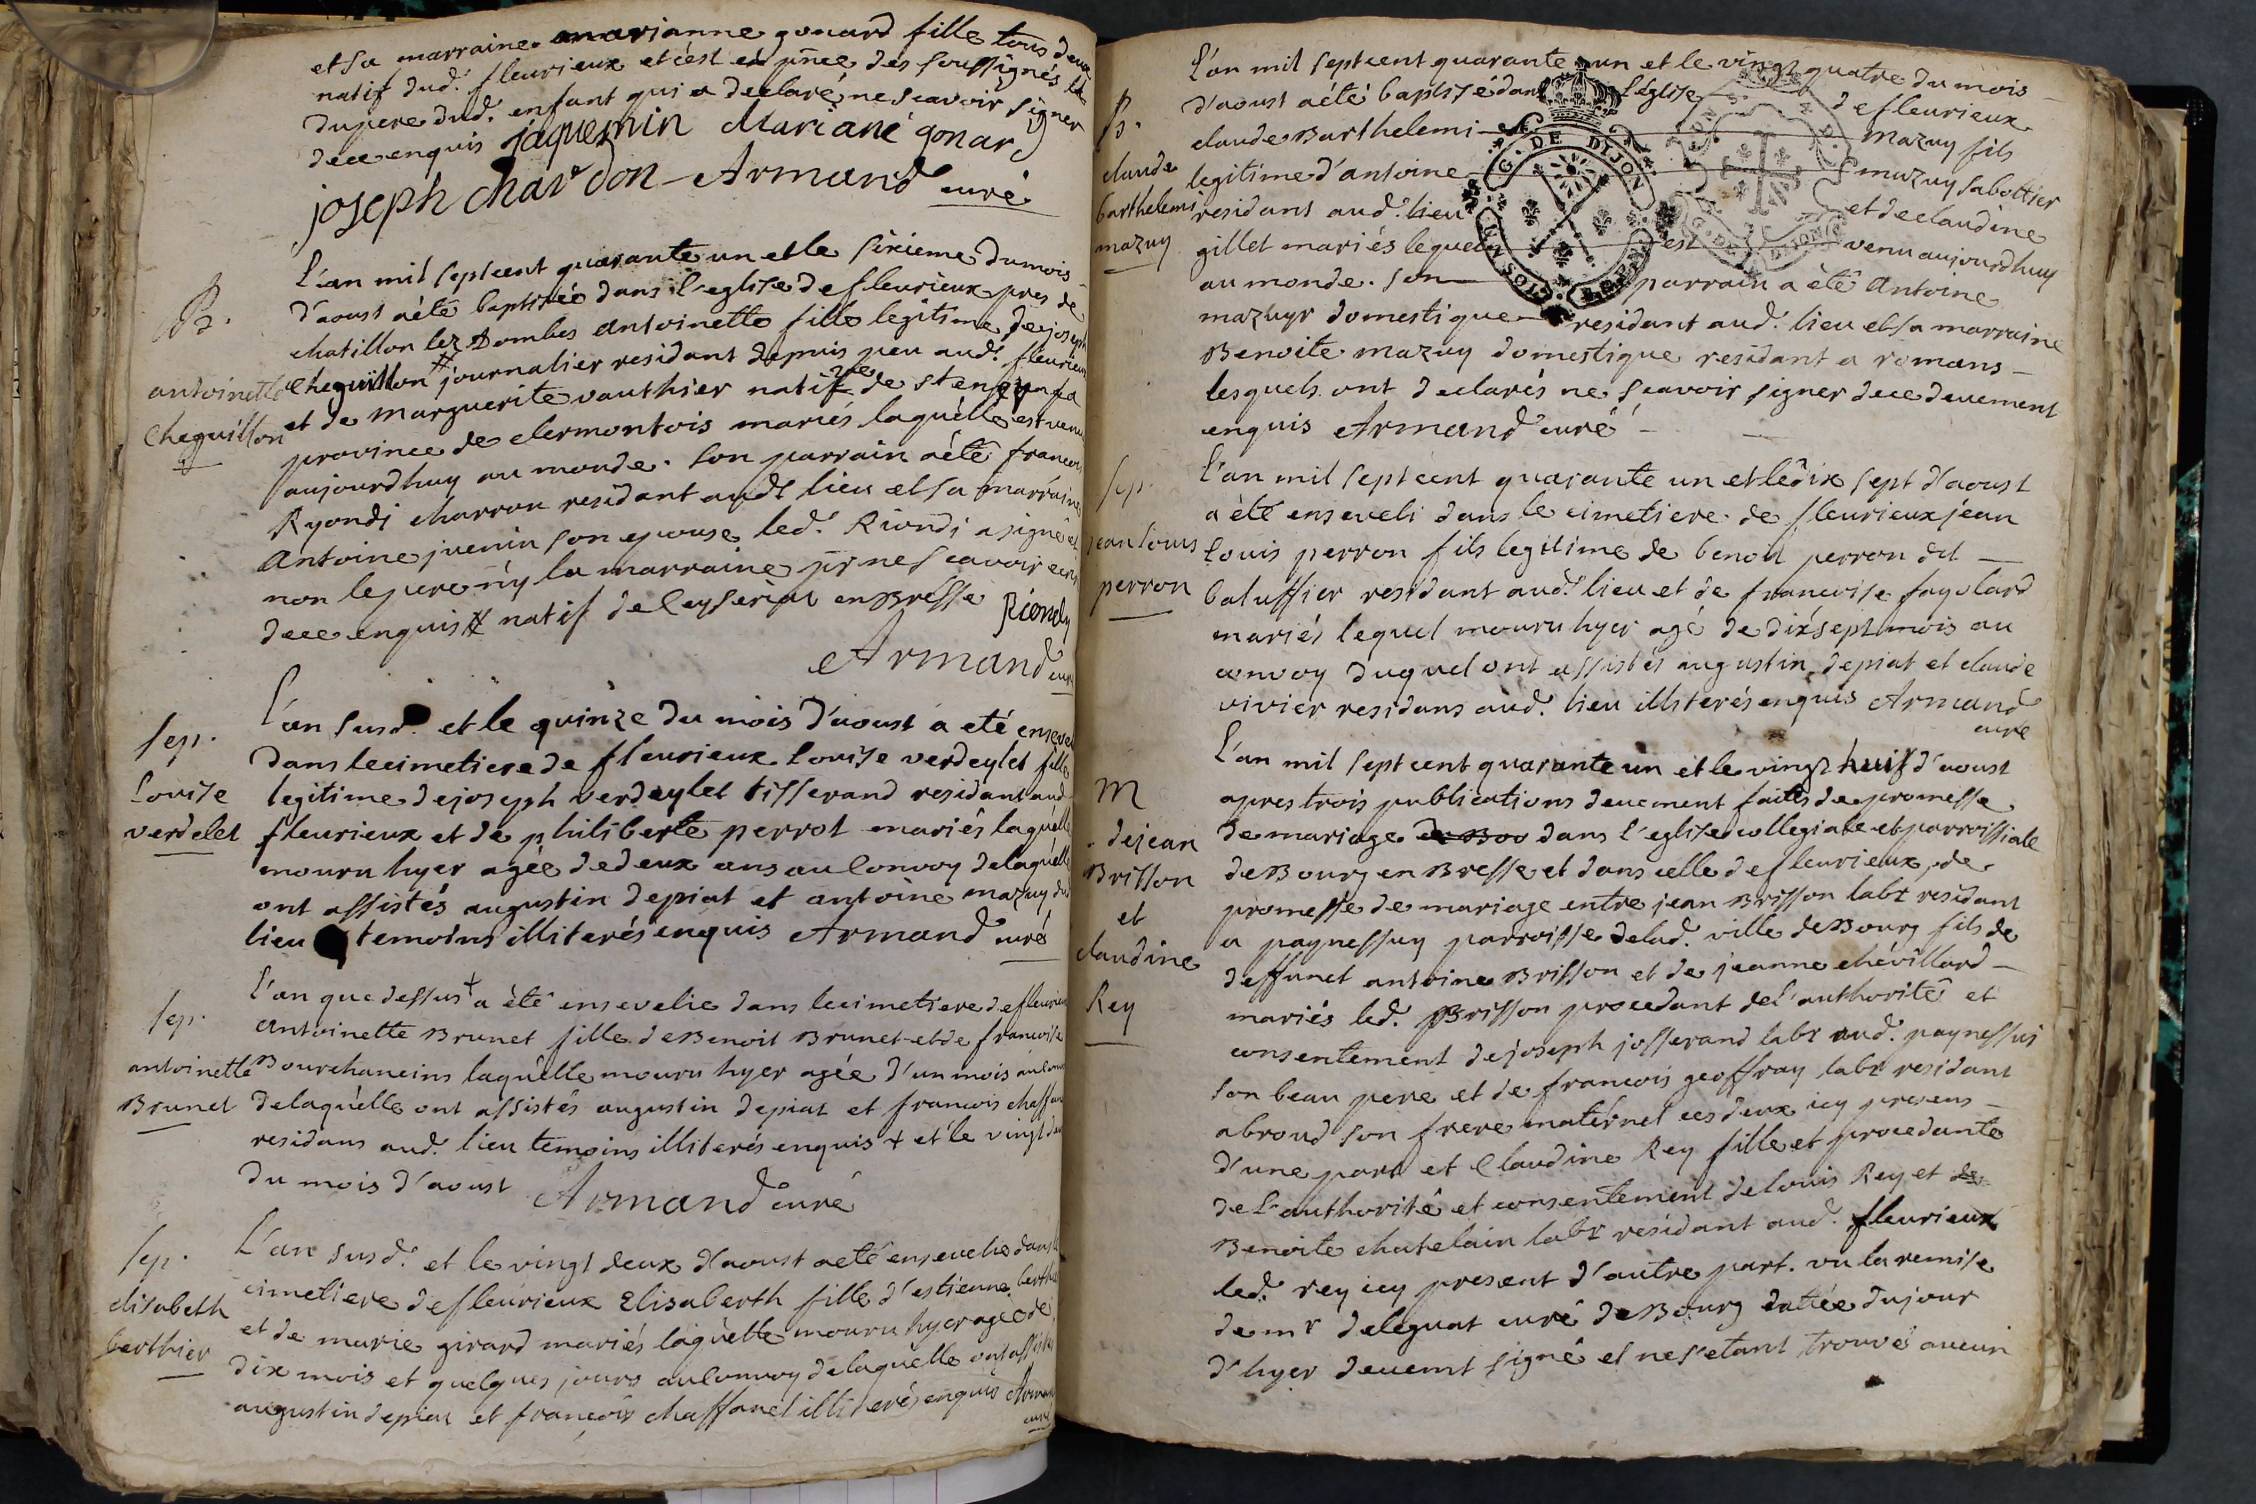 et sa marraine marianne gonard fille tous deux
natif dud. fleurieux et c'est en pnce des soussignés là
du pere dud. enfant qui a declaré ne scavoir signer
dece enquis jaquemin Mariane gonard
joseph chardon Armand curé
L'an mil sept cent quarante un et le sixieme du mois
d'aoust a été baptisée dans l'eglise de fleurieux pres de
B.
chatillon lez Dombes antoinette fille legitime de joseph
antoinette
cheguillon # journalier residant depuis peu aud. fleurieux
cheguillon
et de marguerite vauthier natif de
province de clermontois mariés laquelle est venue
aujourdhuy au monde. son parrain a été francois
Ryondi charron residant audt lieu et sa marraine
Antoine juenin son epouse led. Riondi a signé et
non le pere n'y la marraine pr ne scavoir
dece enquis # natif de leyseriat en Bresse Riondy
Armand curé
L'an susd. et le quinze du mois d'aoust a eté enseveli
sep.
dans le cimetiere de fleurieux Louise verdeylet fille
Louise
legitime de joseph verdeylet tisserand residant aud.
verdelet
fleurieux et de philiberte perrot mariés laquelle
mouru hyer agée de deux ans au convoy de laquelle
ont assistés augustin depiat et antoine mazuy dud
lieu temoins illiterés enquis Armand curé
L'an que dessus + a été ensevelie dans le cimetiere de fleurieux
sep.
antoinette Brunet fille de Benoit Brunet et de francoise
antoinette
Bourchaneins laquelle mouru hyer agée d'un mois au convoy
Brunet
de laquelle ont assistés augustin depiat et francois chaffanel
residans aud. lieu temoins illiterés enquis + et le vingt deux
du mois d'aoust Armand curé
L'an susd. et le vingt deux d'aoust a eté ensevelie dans le
sep.
cimetiere de fleurieux Elisaberth fille d'estienne berthier
elisabeth
et de marie girard mariés laquelle mouru hyer agée de
berthier
dix mois et quelques jours au convoy de laquelle ont assistés
augustin depiat et francois chaffanel illiterés enquis Armand
curé
L'an mil sept cent quarante un et le vingt quatre du mois
d'aoust a été baptisé dans l'eglise de fleurieux
B.
claude Barthelemi mazuy fils
claude
legitime d'antoine mazuy sabottier
barthelemi
residant aud. lieu et de claudine
mazuy
gillet mariés lequel est venu aujourdhuy
au monde. son parrain a été Antoine
mazuyr domestique residant aud. lieu et sa marraine
Benoite mazuy domestique residant a romans
lesquels ont declarés ne scavoir signer dece duement
enquis Armand curé
G. DE DIJON
L'an mil sept cent quarante un et le dix sept d'aoust
sep.
a été enseveli dans le cimetiere de fleurieux jean
jean louis
Louis perron fils legitime de benoit perron dit
perron
baluffier residant aud. lieu et de francoise fayolard
mariés lequel mouru hyer agé de dix sept mois au
convoy duquel ont assistés augustin depiat et claude
vivier residans aud. lieu illiterés enquis Armand
curé
L'an mil sept cent quarante un et le vingt huit d'aoust
M
apres trois publications deuement faites de promesse
de jean
de mariage de Bou dans l'eglise collegiale et parroissiale
Brisson
de Bourg en Bresse et dans celle de fleurieux, de
et
promesse de mariage entre jean Brisson labr residant
claudine
a paynessuy parroisse de lad. ville de Bourg fils de
Rey
deffunct antoine Brisson et de jeanne chevillard
mariés led. Brisson procedant de l'authorité et
consentement de joseph josserand labr aud. paynessuj
son beau pere et de francois geoffray labr residant
a broud son frere maternel ces deux icy presens
d'une part et Claudine Rey fille et procedante
de l'authorité et consentement de louis Rey et de
Benoite chatelain labr residant aud. fleurieux
led. rey icy present d'autre part. vu la remise
de mr deleguat curé de Bourg datée du jour
d'hyer deuemt signé et ne s'etant trouvé aucun